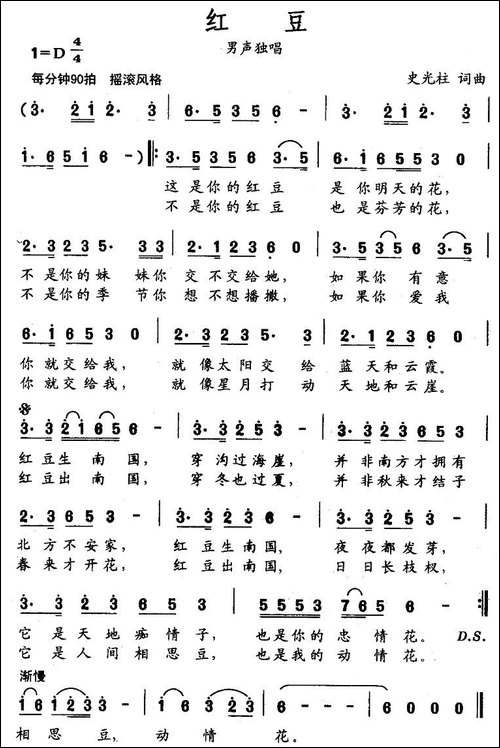 红豆
男声独唱
1=D 4/4
每分钟90拍 摇滚风格
史光柱 词曲
(3· 2 1 2· 3 | 6· 5 3 5 6 | 3· 2 1 2· 3 |
1· 6 5 1 6 -) ‖: 3· 5 2 3 5 6 3·5 | 6· 1 6 5 5 3 0 |
这是你的红豆 是你明天的花,
不是你的红豆 也是芬芳的花,
2· 3 2 3 5· 3 3 | 2· 1 2 3 6 0 | 2· 5 3 5 6 3·5 |
不是你的妹 妹你 交不交给她, 如果你 有意
不是你的季 节你 想不想播撒, 如果你 爱我
6· 1 6 5 3 0 | 2· 3 2 3 5· 3 | 2· 1 2 3 6 0 |
你就交给我, 就像太阳交 给 蓝天和云霞。
你就交给我, 就像星月打 动 天地和云崖。
3· 3 2 1 6 5 6 | 3· 3 2 5 3 - | 3· 3 2 3 6 5 3
红豆生 南国, 穿沟过海崖, 并非南方才拥有
红豆出 南国, 穿冬也过夏, 并非秋来才结子
2· 3 6 5 3 - | 3· 3 2 3 2 6 | 3· 3 2 3 5 3 - |
北方不安家, 红豆生南国, 夜夜都发芽,
春来才开花, 红豆出南国, 日日长枝杈,
3· 3 2 3 6 5 3 | 5 5 5 3 5 7 6 6 - :‖
它是天地痴情子, 也是你的忠情花。 D.S.
它是人间相思豆, 也是我的动情花。
渐慢
1 6 1 2·3 | 1 3 2 3 2 3 | 6 - - - | 6 0 0 0 ‖
相思豆, 动情 花。